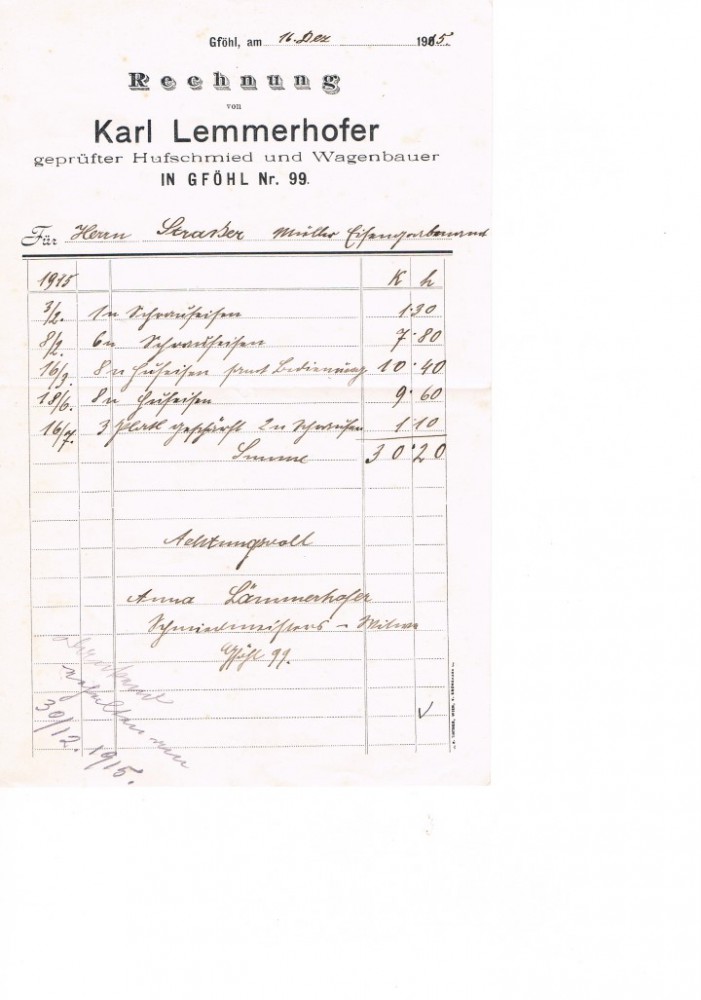 Gföhl, am 16. Dez 1915.
Rechnung
von
Karl Lemmerhofer
geprüfter Hufschmied und Wagenbauer
IN GFÖHL Nr. 99.
Für Herrn Straßer Müller Eisengraberamt
1915 K h
3/2. 1 n Schraufeisen 1·30
8/2. 6 n Schraufeisen 7·80
16/3. 8 n Hufeisen samt Bedienung 10·40
18/6. 8 n Hufeisen 9·60
16/7. 3 geschärft 2 n 1·10
Summe 30·20
Achtungsvoll
Anna Lämmerhofer
Schmiedmeisters - Witwe
Gföhl 99.
erhalten am
30/12. 1915.